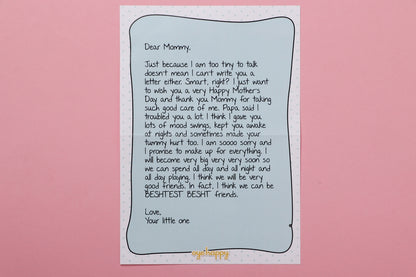 Dear Mommy,
Just because I am too tiny to talk
doesn't mean I can't write you a
letter either. Smart, right? I just want
to wish you a very Happy Mother's
Day and thank you Mommy for taking
such good care of me. Papa said I
troubled you a lot. I think I gave you
lots of mood swings, kept you awake
at nights and sometimes made your
tummy hurt too. I am soooo sorry and
I promise to make up for everything. I
will become very big very very soon so
we can spend all day and all night and
all day playing. I think we will be very
good friends. In fact, I think we can be
BESHTEST BESHT friends.
Love,
Your little one
oye happy